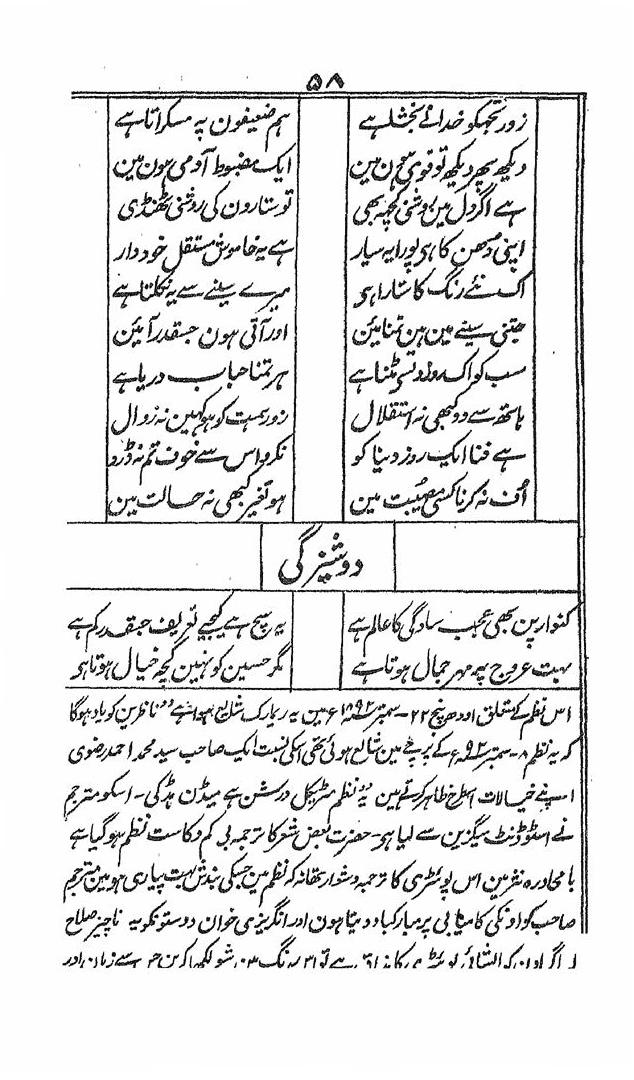 ۵۸
زور تجھکو خدا نے بخشا ہے ہم ضعیفون پہ مسکراتا ہے
دیکھ پھر دیکھ تو قوی ہون مین ایک مضبوط آدمی ہون مین
ہے اگر دل مین روشنی کچھ بھی تو ستارون کی روشنی ٹھنڈی
اپنی دھن کا ہی پورا یہ سیار ہے یہ خاموش مستقل خود دار
اک نئے رنگ کا ستارا ہی میرے سینے سے یہ نکلتا ہے
جتنی سینے مین ہین تمنائین اور آتی ہون جسقدر آئین
سب کو اک روز مٹنا ہے ہر تمنا حباب دریا ہے
ہاتھ سے دو کبھی نہ استقلال زور ہمت کو ہو کہین نہ زوال
ہے فنا ایک روز دینا کو نکرو اس سے خوف تم نہ ڈرو
اُف نہ کرنا کسی مصیبت مین ہو تغیر کبھی نہ حالت مین
دوشیزگی
کنوارپن بھی عجب سادگی کا عالم ہے یہ سچ ہے کیجیے تعریف جسقدر کم ہے
بہت عروج پہ مہر جمال ہوتا ہے مگر حسین کو نہین کچھ خیال ہوتا ہی
اس نظم کے متعلق اودھ پنچ ۲۲- ستمبر ۱۸۹۲ء مین یہ ریمارک شایع ہوا ہے "ناظرین کو یاد ہوگا
کہ یہ نظم ۸- ستمبر ۹۲ء کے پرچے مین شایع ہوئی تھی اسکی نسبت ایک صاحب سید محمد احمد رضوی
اپنے خیالات اسطرح ظاہر کرتے ہین یہ نظم مٹریکل ورشن ہے میڈن ہڈ کی- اسکو مترجم
نے اسٹوڈنٹ میگزین سے لیا ہی- حضرت بعض شعر کا ترجمہ بی کم و کاست نظم ہوگیا ہے
بامحاورہ نثر مین اس پوئٹری کا ترجمہ دشوار تھا نہ کہ نظم مین جسکی بندش بہت پیاری ہو مین مترجم
صاحب کو اونکی کامیابی پر مبارکباد دیتا ہون اور انگریزی خوان دوستونکو یہ ناچیز صلاح